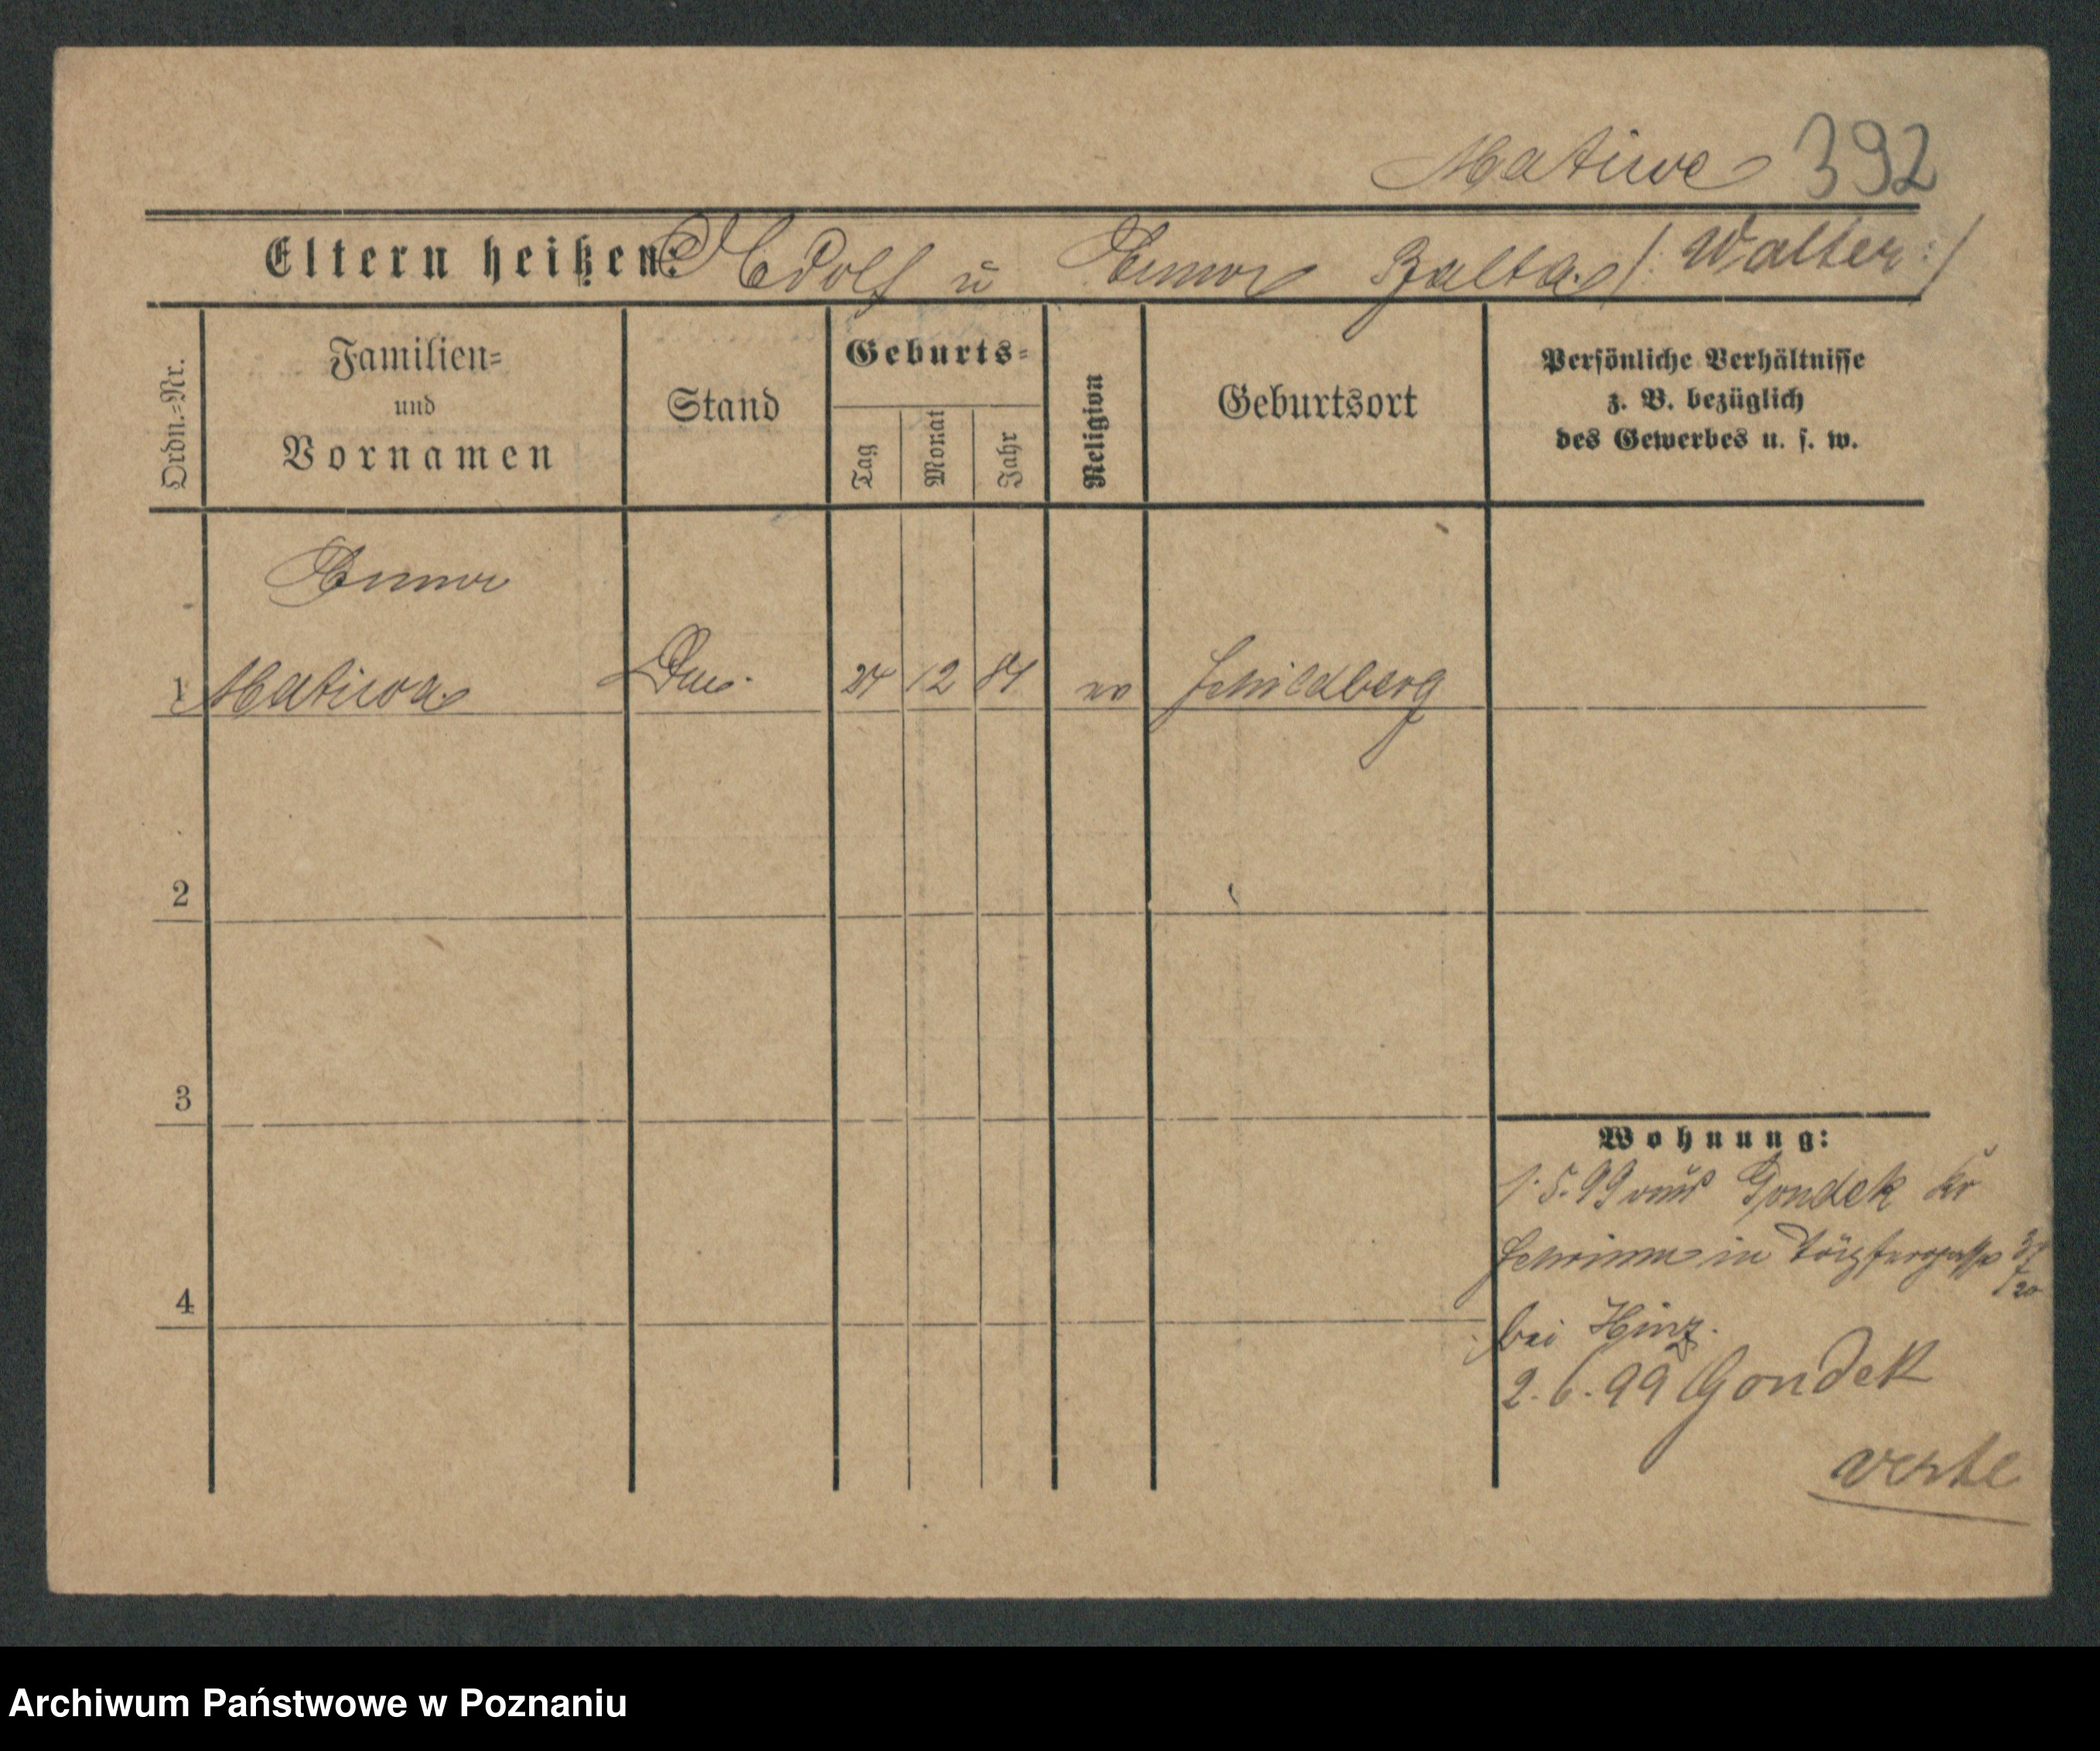 Matiwe 392
Eltern heißen: Adolf u Anna Balta /: Walter :/
Ordn.=Nr.
Familien=
und
Vornamen
Stand
Geburts=
Tag
Monat
Jahr
Religion
Geburtsort
Persönliche Verhältnisse
z. B. bezüglich
des Gewerbes u. s. w.
Anna
1 Matiwe 12 Schildberg
2
3
4
Wohnung:
1.5.99 aus Gondek Kr
Schrimm in Töpfergasse
bei Hinz.
2.6.99 Gondek
verte
Archiwum Państwowe w Poznaniu